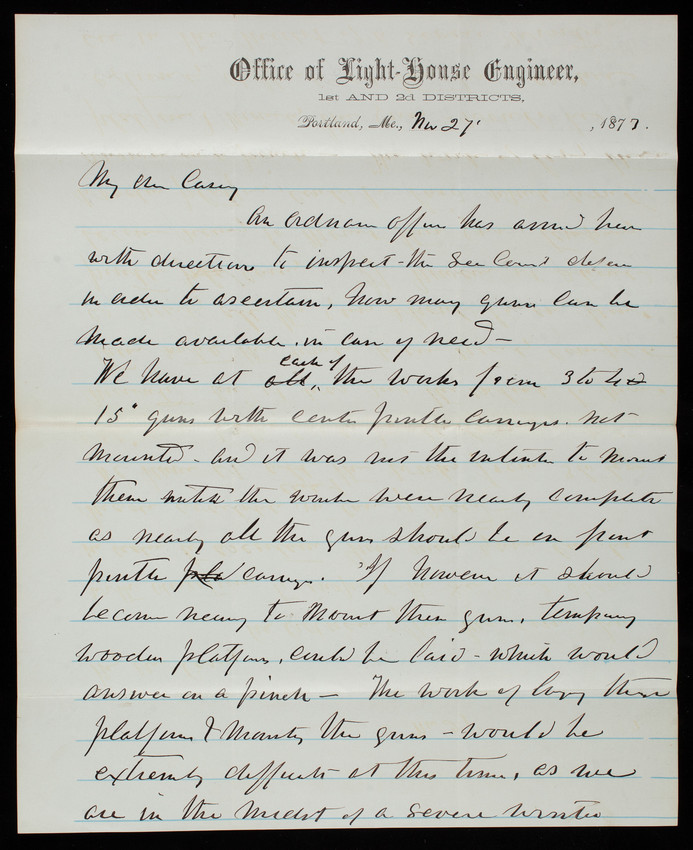 Office of Light-House Engineer,
1st AND 2d DISTRICTS,
Portland, Me., Nov 27, 1873.
My dear Casey
An ordnance officer has arrived here
with directions to inspect the Sea Coast defense
in order to ascertain, how many guns can be
made available in case of need —
We have at all, each of the works from 3 to 4
15" guns with center pintle carriages. not
mounted - and it was not the intention to mount
them until the works were nearly complete
as nearly all the guns should be on front
pintle carriages. If however it should
become necessary to mount these guns, temporary
wooden platforms, could be laid - which would
answer on a pinch — The work of laying these
platforms & mounting the guns - would be
extremely difficult at this time, as we
are in the midst of a severe winter